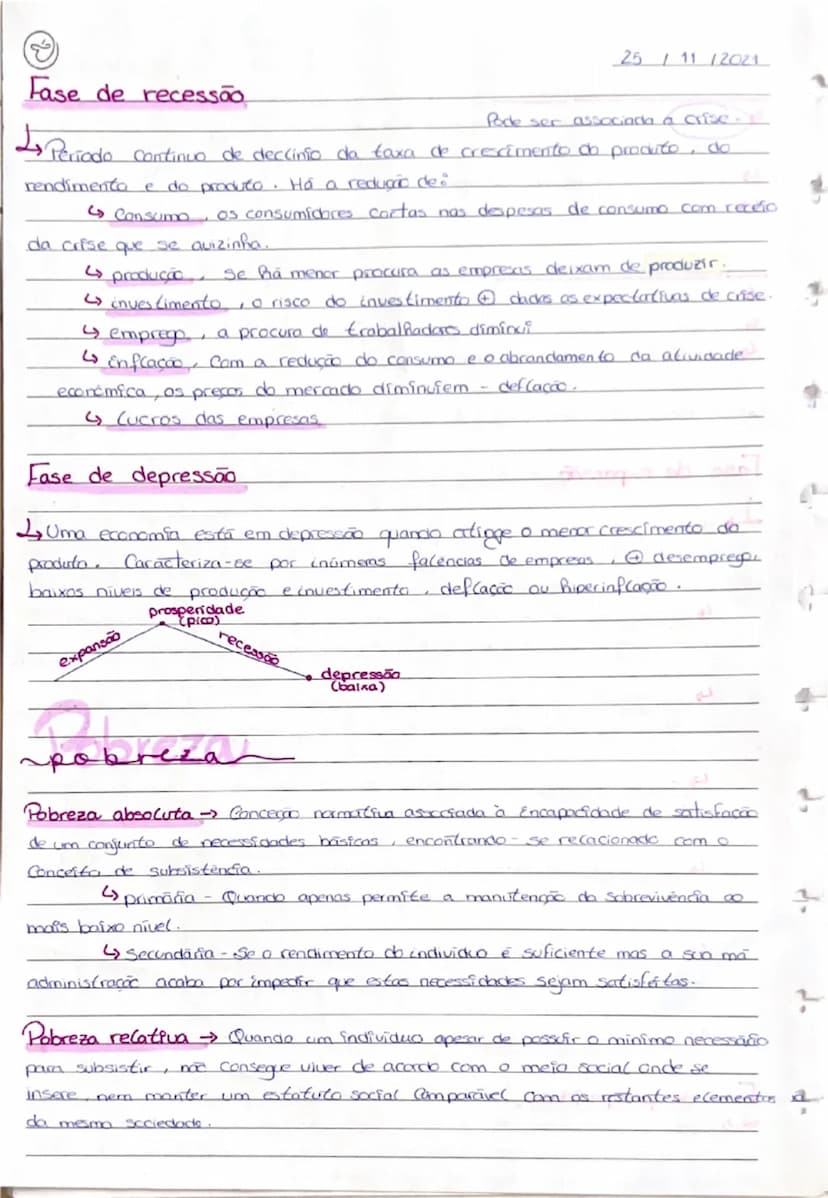 25 / 11 / 2021
Fase de recessão
Pode ser associada á crise.
↳ Período continuo de declínio da taxa de crescimento do produto, do
rendimento e do produto. Há a redução de:
↳ Consumo, os consumidores cortas nas despesas de consumo com receio
da crise que se avizinha.
↳ produção, se há menor procura as empresas deixam de produzir.
↳ investimento, o risco do investimento ⊕ dadas as expectativas de crise.
↳ emprego, a procura de trabalhadores diminui
↳ inflação, com a redução do consumo e o abrandamento da atividade
económica, os preços do mercado diminuiem - deflação.
↳ lucros das empresas
Fase de depressão
↳ Uma economia está em depressão quando atinge o menor crescimento do
produto. Caracteriza-se por inúmeras falências de empresas, ⊕ desemprego,
baixos niveis de produção e investimento, deflação ou hiperinflação.
prosperidade
(pico)
expansão
recessão
depressão
(baixa)
Pobreza
pobreza
Pobreza absoluta → Conceção normativa associada à incapacidade de satisfação
de um conjunto de necessidades básicas, encontrando-se relacionado com o
Conceito de subsistência.
↳ primária - Quando apenas permite a manutenção da sobrevivência ao
mais baixo nivel.
↳ Secundária - Se o rendimento do individuo é suficiente mas a sua má
administração acaba por impedir que estas necessidades sejam satisfeitas.
Pobreza relativa → Quando um individuo apesar de possuir o minimo necessário
para subsistir, não consegue viver de acordo com o meio social onde se
insere, nem manter um estatuto social comparável com os restantes elementos
da mesma sociedade.